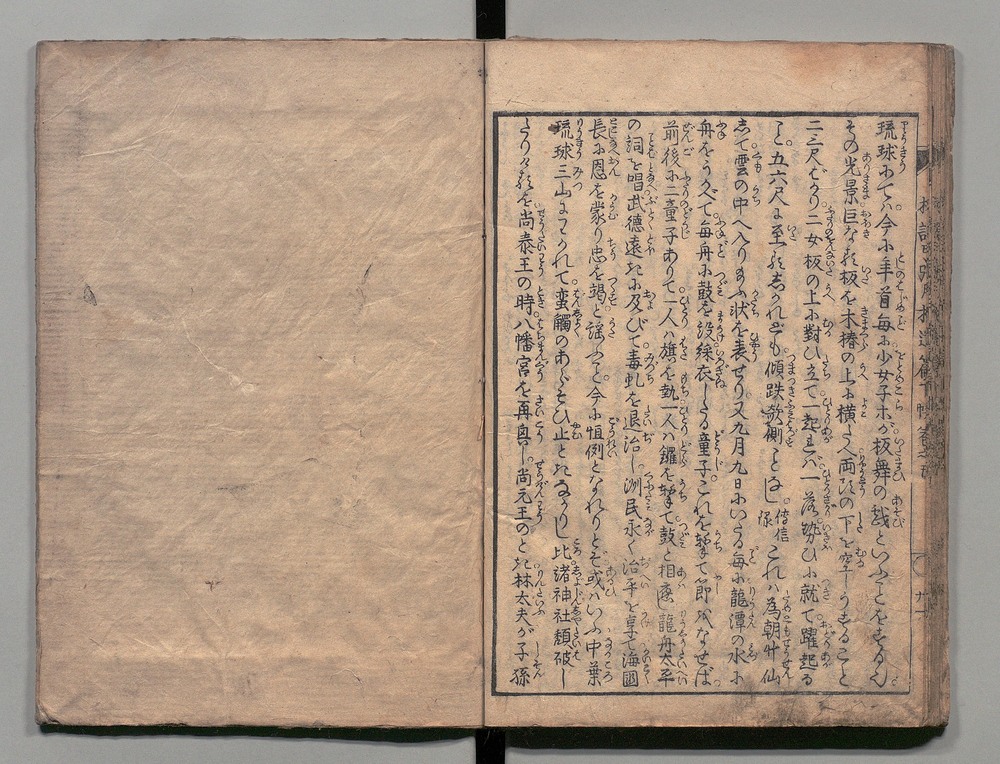 琉球にては。今に年首毎に少女子ホが板舞の戯といふことをするに
その光景巨なる板を木椿の上に横たへ両頭の下を空しうすること
二三尺ばかり二女板の上に對ひ立て一起れば一落勢ひに就て躍起る
こと。五六尺に至るしかれども傾跌欹側ことなし。傳信録これは為朝廾仙
して雲の中へ入りたまふ状を表せり。又九月九日にいたる毎に龍潭の水に
舟をうかべて毎舟に鼓を設綵衣したる童子これを撃て節がなせば。
前後に二童子ありて一人は旗を執一人は鑼を撃て鼓と相應し龍舟太平
の詞を唱武德遠きに及びて毒虬を退治し洲民永く治平を享て海國
長に恩を蒙り忠を竭と謡ふこと。今に恒例となれりとぞ或はいふ中葉
琉球三山にわかれて蛮觸のあらそひ止ときなかりし比諸神社頽破し
たりけるを尚泰王の時八幡宮を再興し。尚元王のとき林太夫が子孫